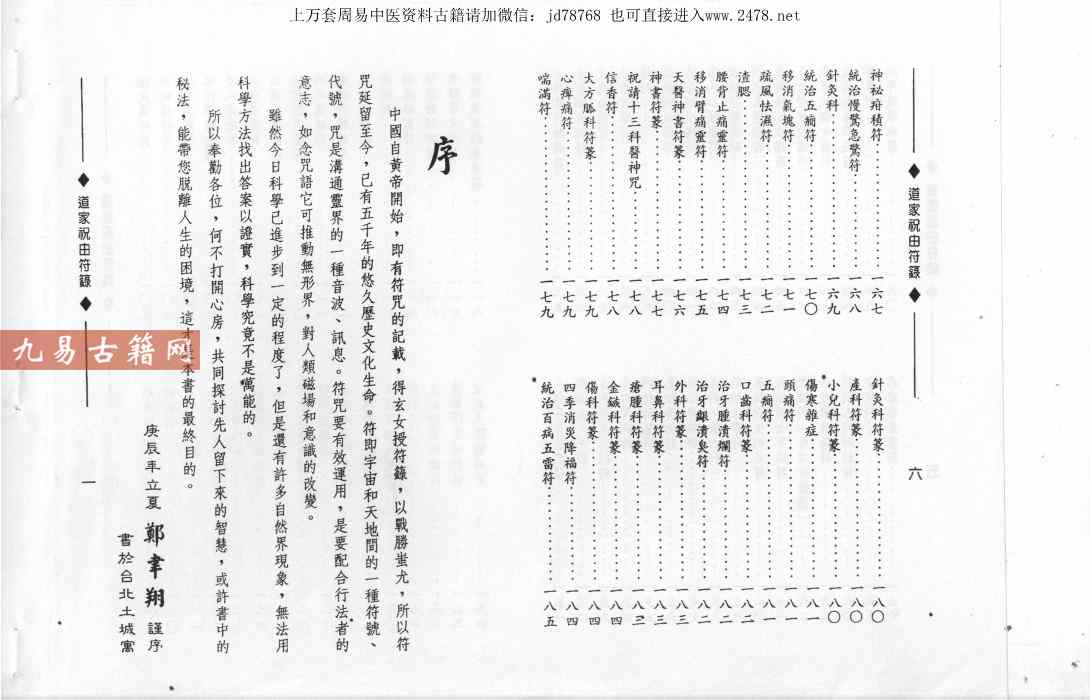 上万套周易中医资料古籍请加微信：jd78768 也可直接进入www.2478.net
◆ 道家祝由符籙 ◆
六
神祕疳積符……一六七
統治慢驚急驚符……一六八
針灸科……一六九
統治五癇符……一七〇
移消氣塊符……一七一
疏風怯濕符……一七二
渣腮……一七三
腰背止痛靈符……一七四
移消臂痛靈符……一七五
天醫神書符篆……一七六
神書符篆……一七七
祝請十三科醫神咒……一七八
信香符……一七八
大方脈科符篆……一七九
心痺痛符……一七九
喘滿符……一七九
針灸科符篆……一八〇
產科符篆……一八〇
小兒科符篆……一八〇
傷寒雜症……一八一
頭痛符……一八一
五癇符……一八一
口齒科符篆……一八二
治牙腫潰爛符……一八二
治牙齦潰臭符……一八二
外科符篆……一八三
耳鼻科符篆……一八三
瘡腫科符篆……一八三
金鏃科符篆……一八四
傷科符篆……一八四
四季消災降福符……一八四
統治百病五雷符……一八五
序
中國自黃帝開始，即有符咒的記載，得玄女授符籙，以戰勝蚩尤，所以符
咒延留至今，已有五千年的悠久歷史文化生命。符即宇宙和天地間的一種符號、
代號，咒是溝通靈界的一種音波、訊息。符咒要有效運用，是要配合行法者的
意志，如念咒語它可推動無形界，對人類磁場和意識的改變。
雖然今日科學已進步到一定的程度了，但是還有許多自然界現象，無法用
科學方法找出答案以證實，科學究竟不是萬能的。
所以奉勸各位，何不打開心房，共同探討先人留下來的智慧，或許書中的
秘法，能帶您脫離人生的困境，這本書的最終目的。
庚辰年立夏 鄭聿翔 謹序
書於台北土城寓
◆ 道家祝由符籙 ◆
一
九易古籍网